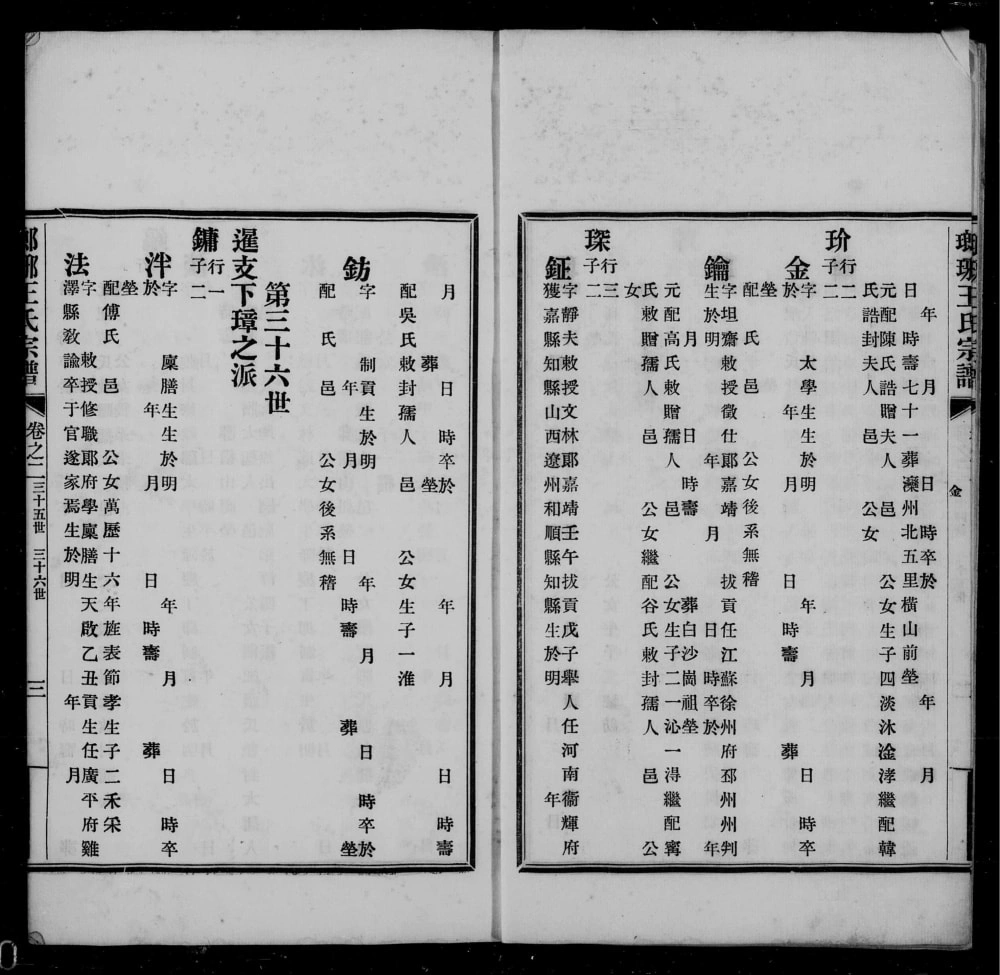 瑯琊王氏宗譜
金
年 月 日 時卒於 年 月
日 時壽七十一葬濼州北五里橫山前塋
元配陳氏誥贈夫人 邑 公女生子四淡沐淦浡繼配韓
氏誥封夫人 邑 公女
玠行二
子二
金字 太學生生於明 年 月 日 時卒
於 年 月 日 時壽 葬
塋
配 氏 邑 公女後系無稽
鑰字坦齋敕授徵仕郎嘉靖 拔貢任江蘇徐州府邳州州判
生於明 年 月 日 時卒於 年
月 日 時壽 葬白沙崗祖塋
元配高氏敕贈孺人 邑 公女生子二一沁一淂繼配甯
氏敕贈孺人 邑 公女繼配谷氏敕封孺人 邑 公
女
琛行三
子二
鉦字靜夫敕授文林郎嘉靖壬午拔貢戊子舉人任河南衞輝府
獲嘉縣知縣山西遼州和順縣知縣生於明 年
月 日 時卒於 年 月 日 時壽
葬 塋
配吳氏敕封孺人 邑 公女生子一淮
鈁字 制貢生於明 年 月 日 時卒於
年 月 日 時壽 葬 塋
配 氏 邑 公女後系無稽
第三十六世
暹支下璋之派
鏞行一
子二
泮字 廩膳生生於明 年 月 日 時卒
於 年 月 日 時壽 葬
塋
配傅氏 邑 公女萬歷十六年旌表節孝生子二禾采
法字 敕授修職郎府學廩膳生天啟乙丑貢生任廣平府雞
澤縣敎諭卒于官遂家焉生於明 年 月
王氏宗譜
卷之二
三十五世 三十六世
三